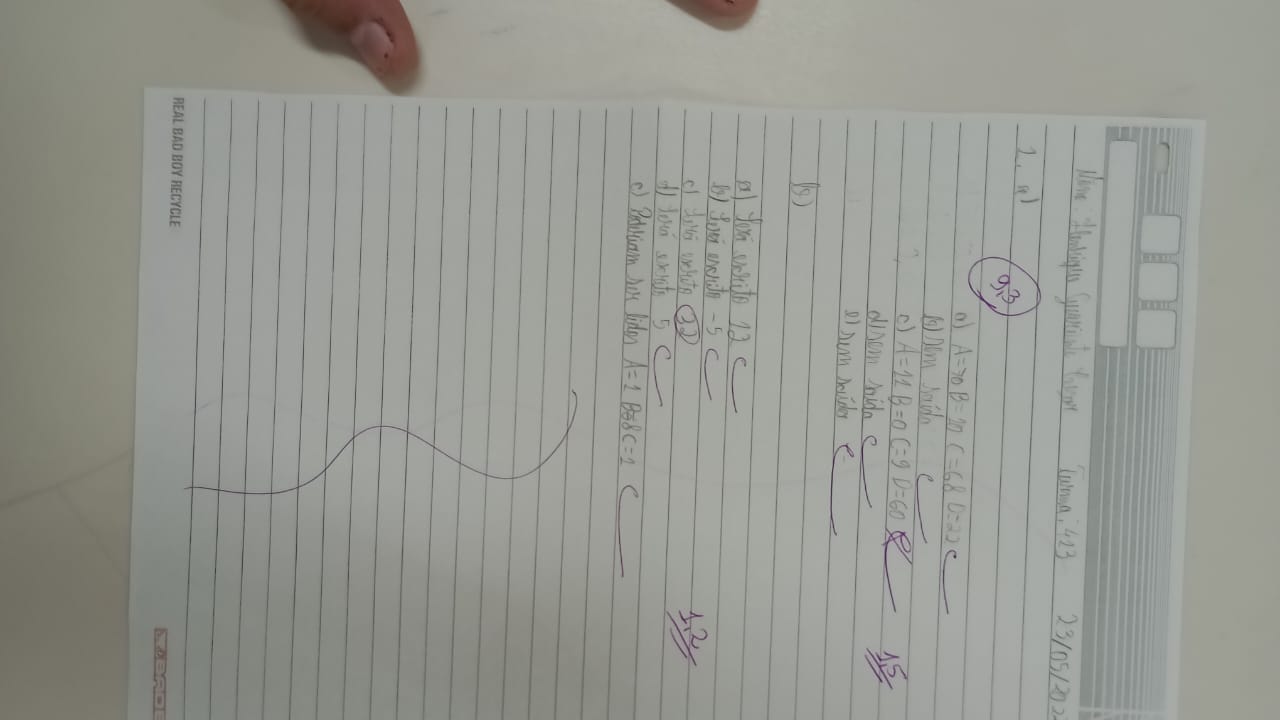 Nome: Henrique Turma: 423 23/05/202
1. a)
9,3
a) A=70 B=20 C=68 D=22
b) sem saída
c) A=11 B=0 C=9 D=60
1,5
d) sem saída
e) sem saída
b)
a) Será escrito 12
b) Será escrito -5
c) Será escrito 32
1,2
d) Será escrito 5
e) Poderiam ser lidos A=1 B=8 C=1
REAL BAD BOY RECYCLE